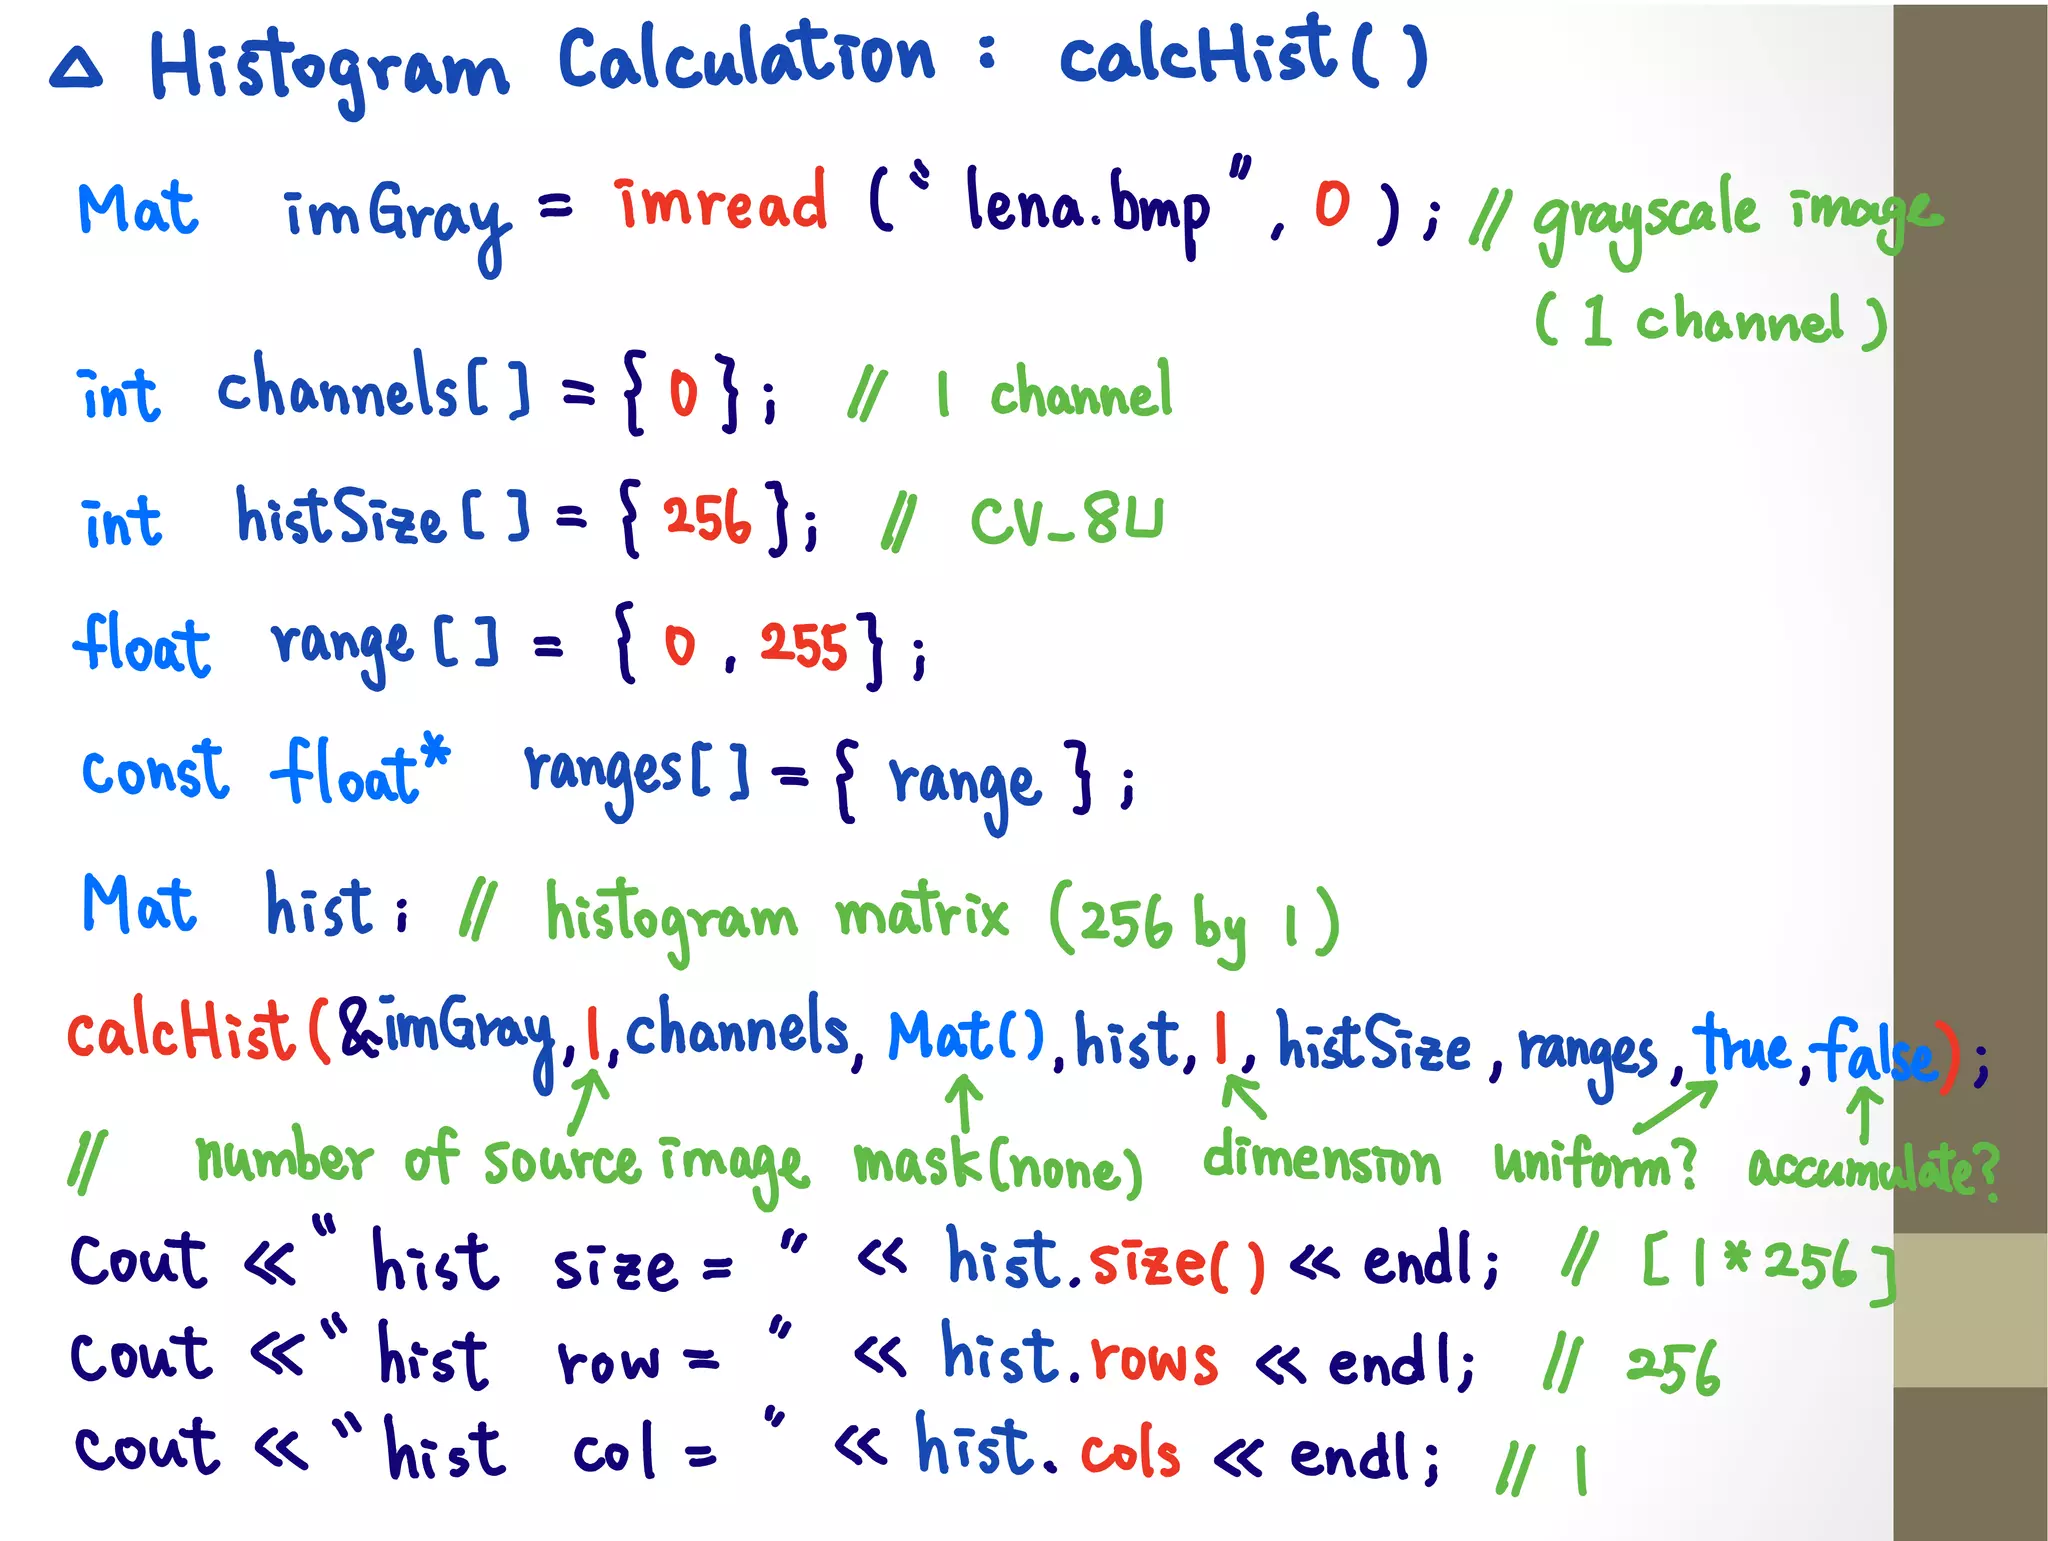 △ Histogram Calculation : calcHist()
Mat imGray = imread ("lena.bmp", 0); // grayscale image
(1 channel)
int channels[] = {0}; // 1 channel
int histSize[] = {256}; // CV_8U
float range[] = {0, 255};
const float* ranges[] = {range};
Mat hist; // histogram matrix (256 by 1)
calcHist(&imGray,1,channels, Mat(),hist,1, histSize, ranges, true, false);
// number of source image mask(none) dimension uniform? accumulate?
cout << "hist size = " << hist.size() << endl; // [1*256]
cout << "hist row = " << hist.rows << endl; // 256
cout << "hist col = " << hist.cols << endl; // 1